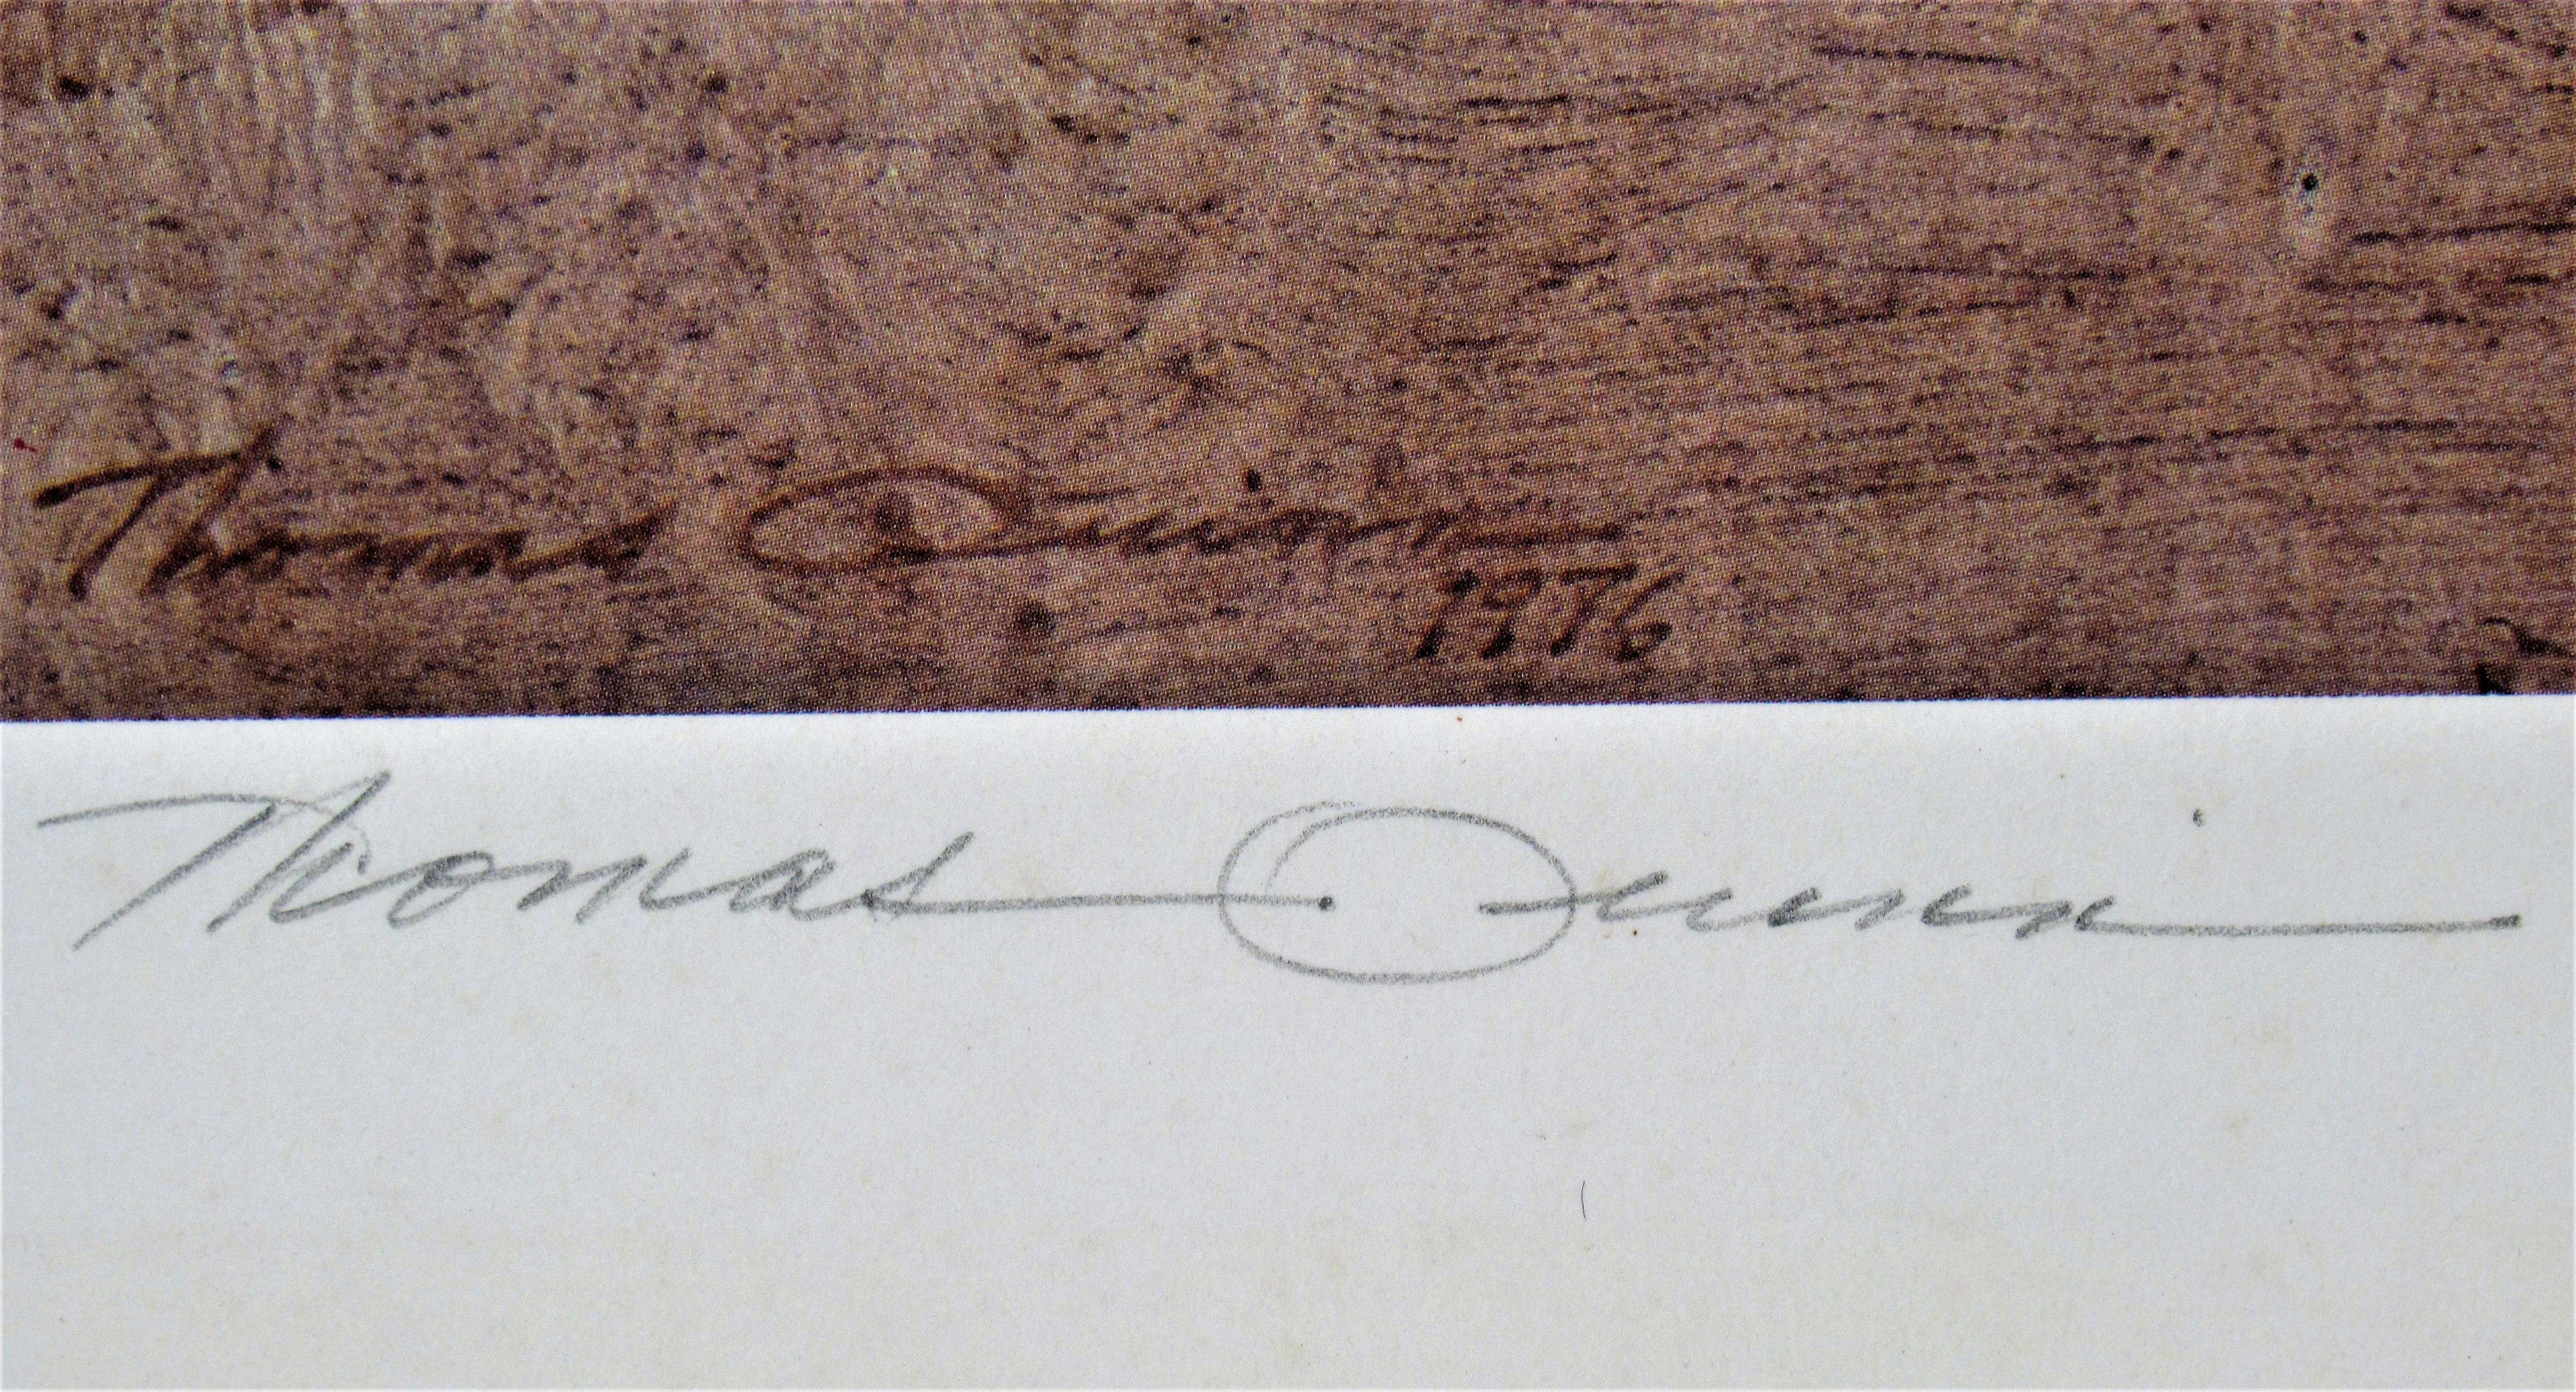 Thomas Quinn
1976
Thomas Quinn